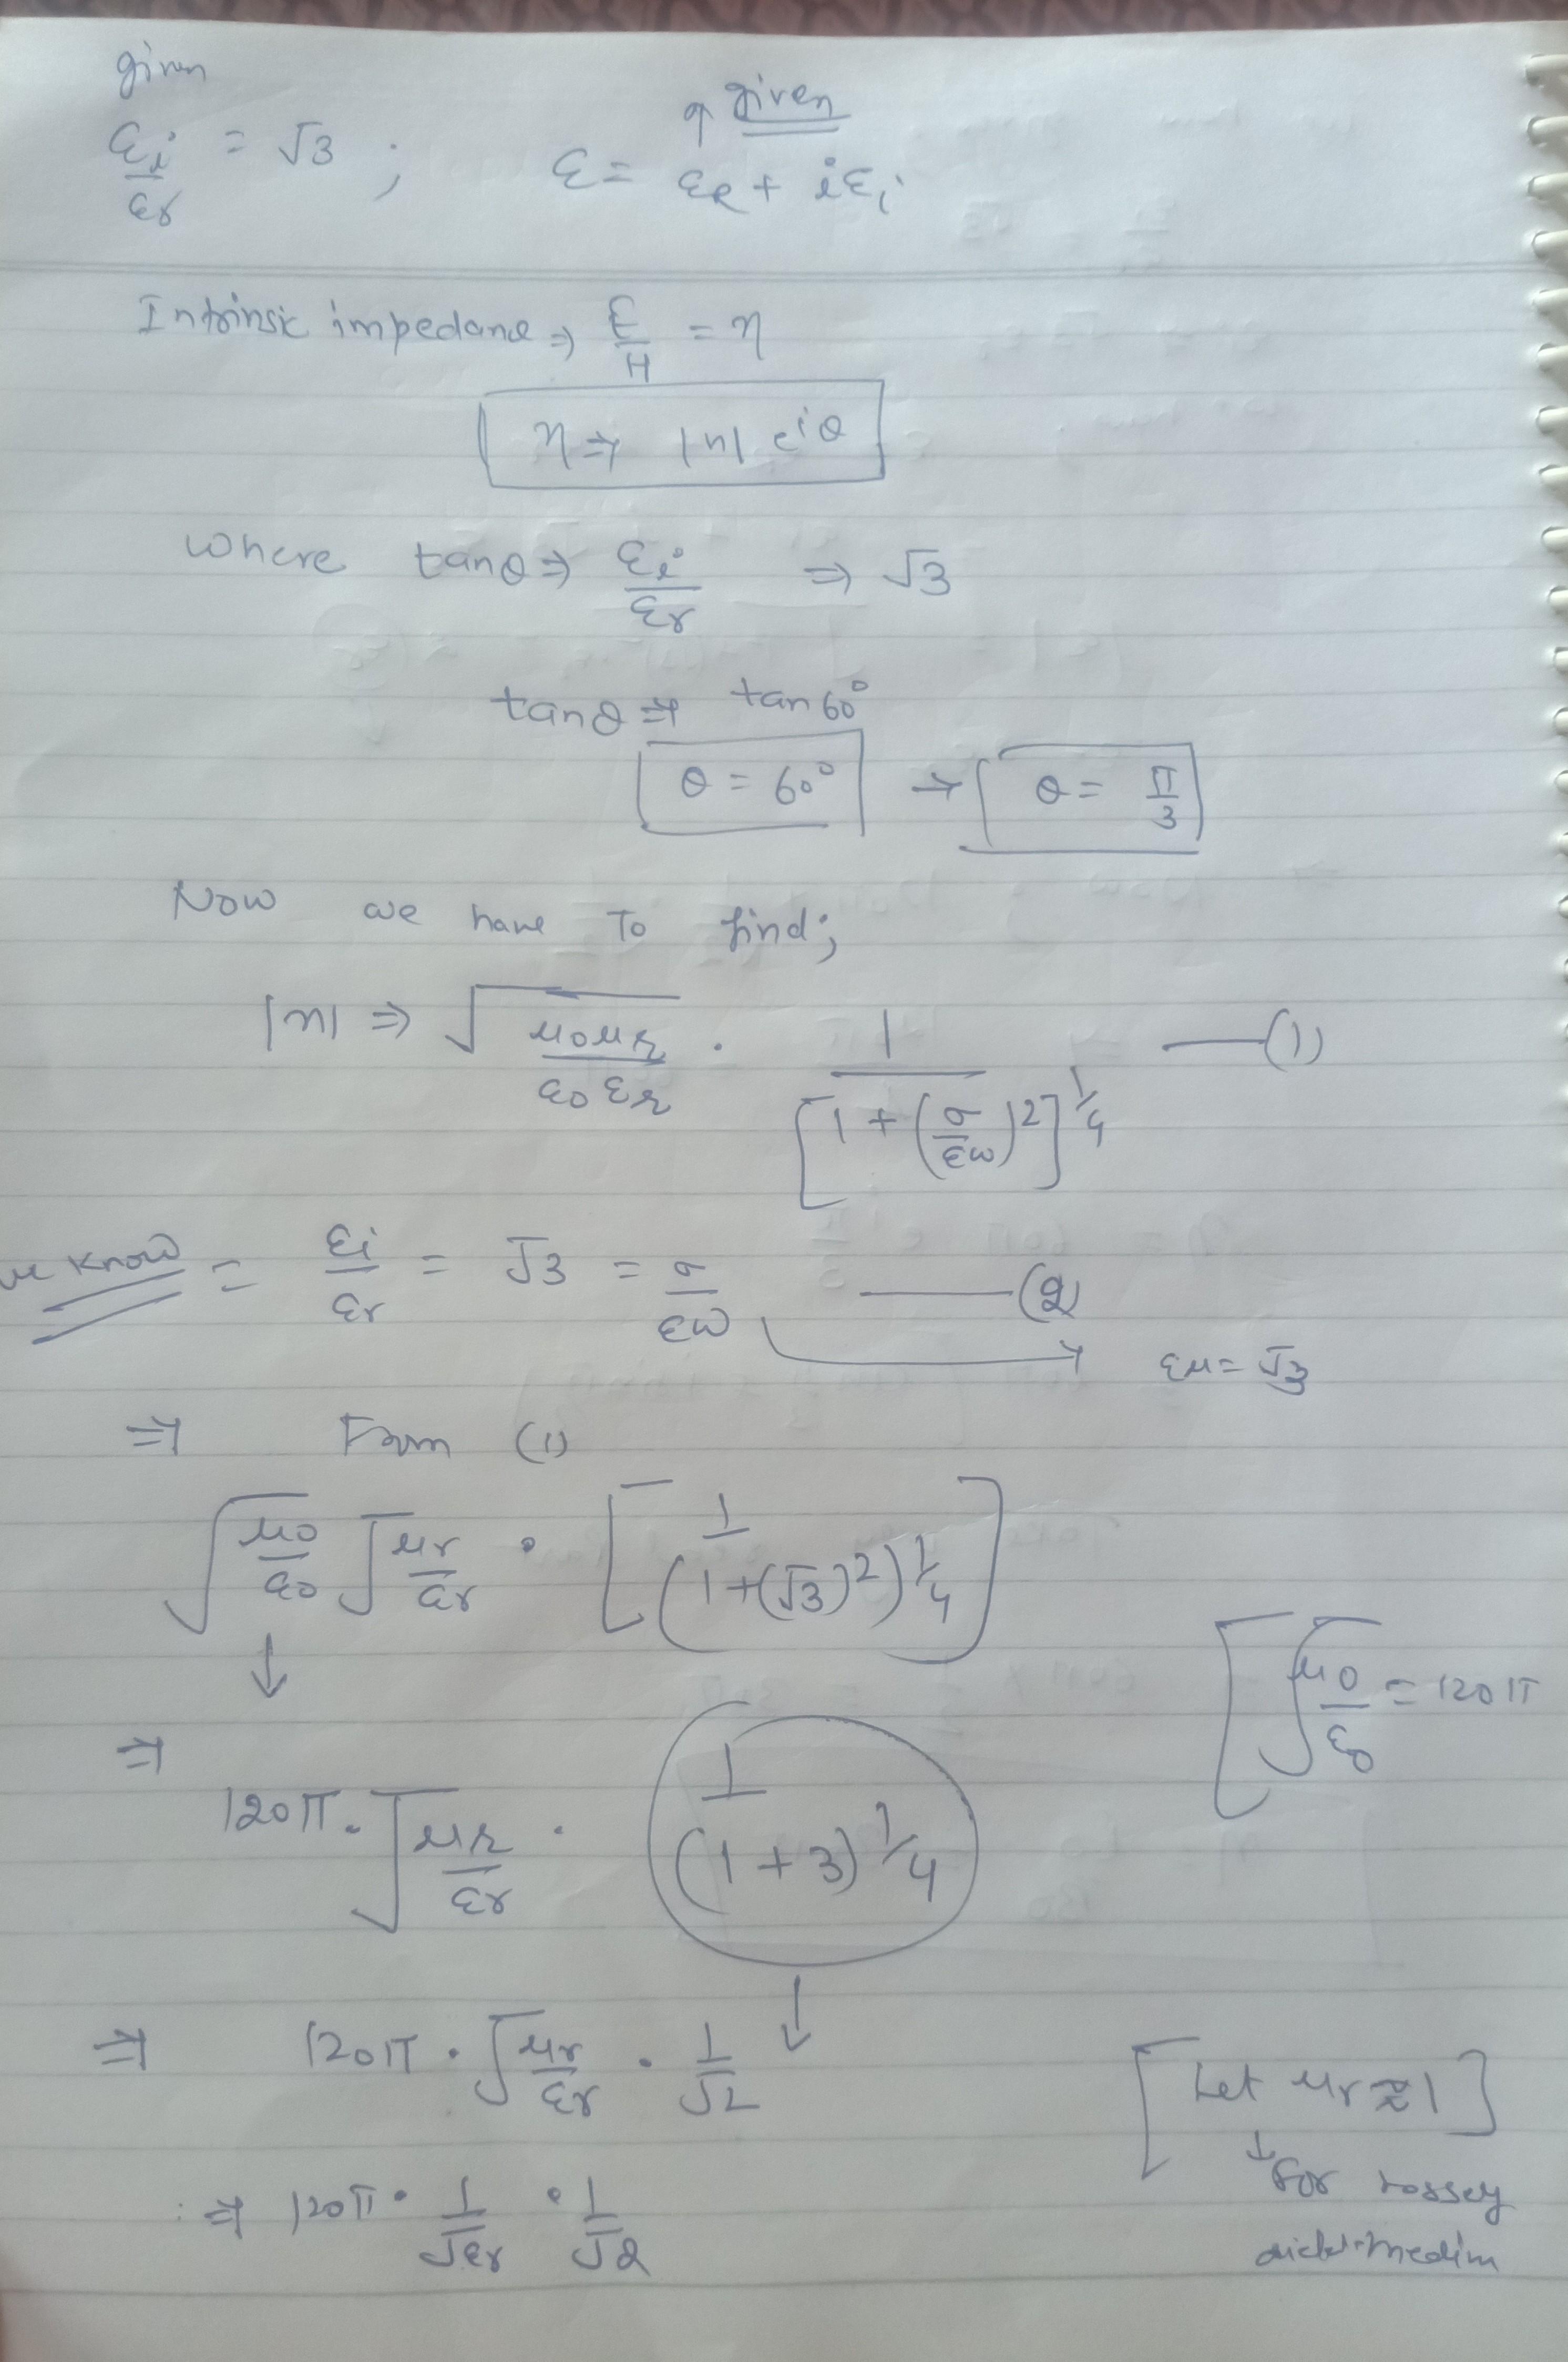 given
↑ given
εi/εr = √3 ; ε = εR + iεi
Intrinsic impedane ⇒ E/H = η
η ⇒ |η| e^iθ
where tanθ ⇒ εi/εr ⇒ √3
tanθ ⇒ tan 60°
θ = 60° → θ = π/3
Now we have To find;
|η| ⇒ √(μ0μr/ε0εr) · 1/[1+(σ/εω)²]^1/4 —(1)
we know = εi/εr = √3 = σ/εω —(2)
→ εμ = √3
⇒ From (1)
√(μ0/ε0) √(μr/εr) · [1/(1+(√3)²)^1/4]
↓
[√(μ0/ε0) = 120π
⇒ 120π · √(μr/εr) · 1/(1+3)^1/4
↓
⇒ 120π · √(μr/εr) · 1/√2
[Let μr ≈ 1]
↓
for
⇒ 120π · 1/√εr · 1/√2